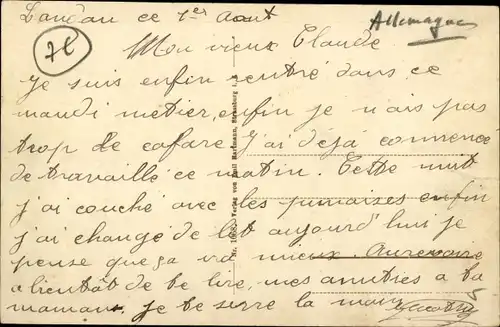 Landau ce 1er Aout
Allemagne
72
Mon vieux Claude
Je suis enfin rentré dans ce
maudi métier, enfin je n'ais pas
trop de cafare j'ai déjà commence
de travaillé ce matin. Cette nuit
j'ai couché avec les punaises enfin
j'ai changé de lit aujourd'hui je
pense que ça ira mieux Aurevoir
a bientât de te lire, mes amitiés a ta
maman. je te serre la main
Verlag von Emil Hartmann, Strassburg i.